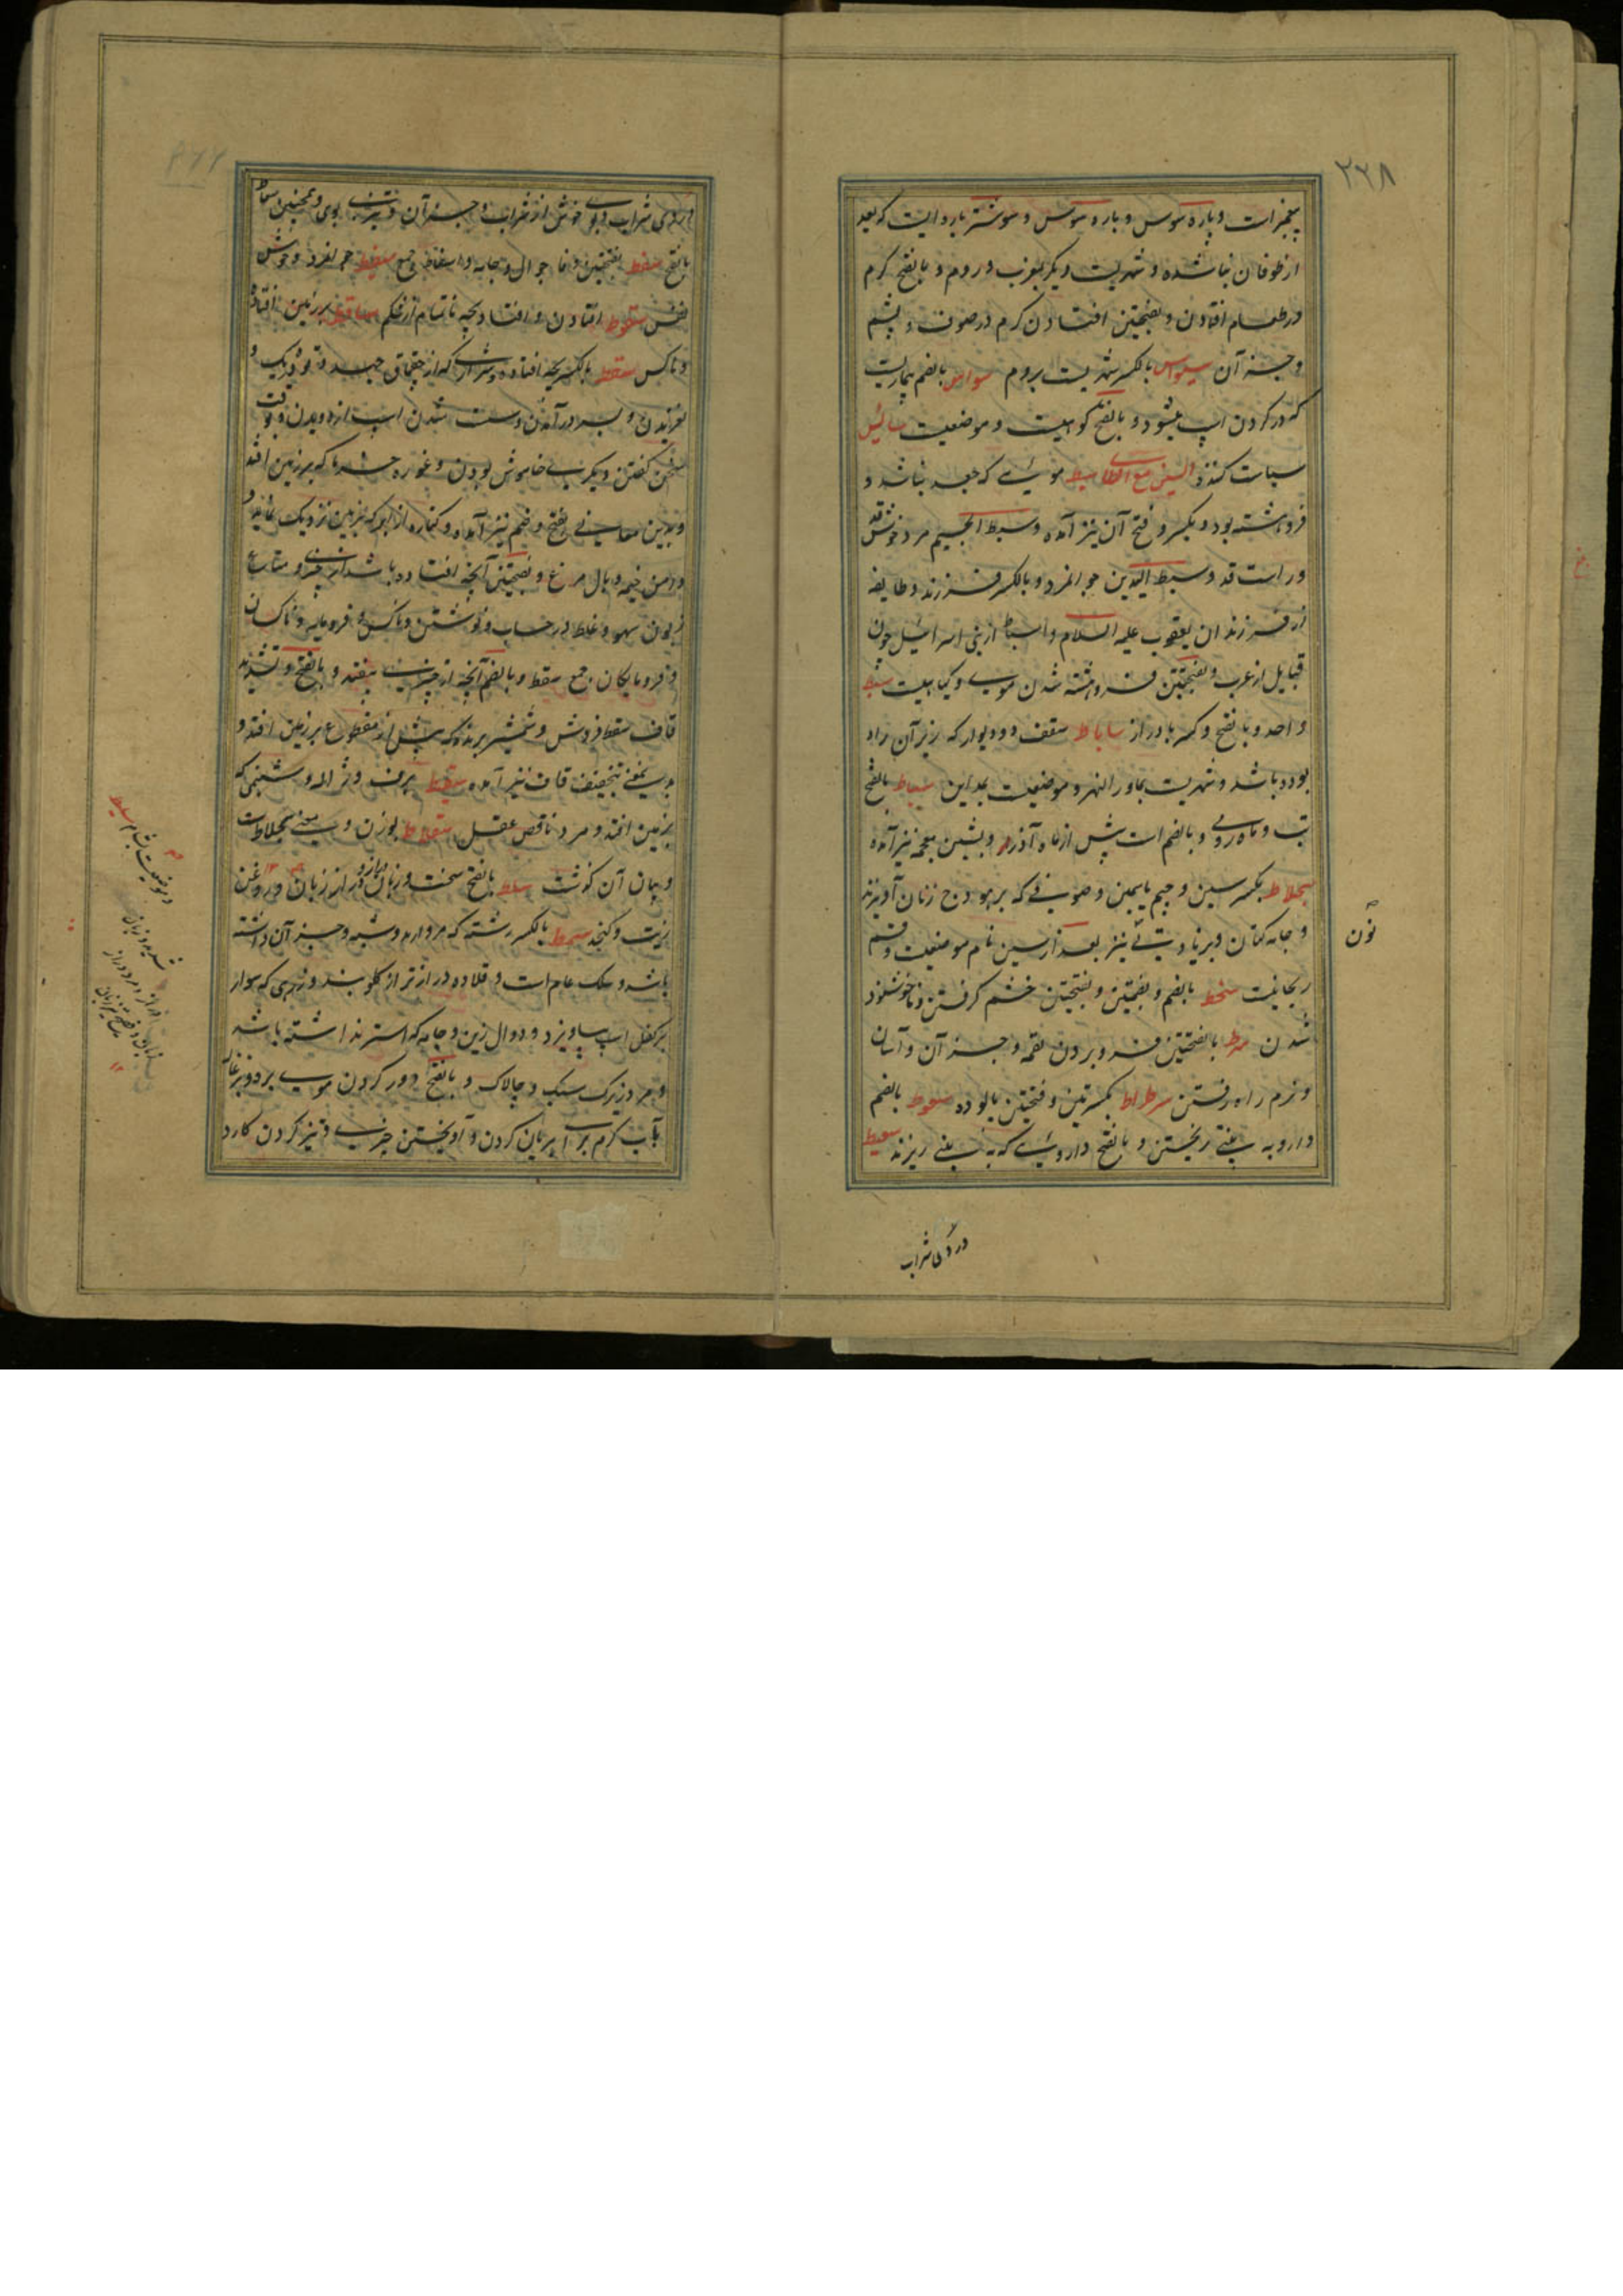 ۲۲۸
پیغمبرانست و باره سوس و باره سوس و سوشتر باره ایست که بعد
از طوفان بنا شده و شهریست دیگر بمغرب و روم و بالفتح کرم
در طعام افتادن و بفتحتین افتادن کرم در صوف و پشم
و جز آن سیواس بالکسر شهریست بروم سواس بالضم بیماریست
که در گردن اسپ میشود و بالفتح کوهیست و موضعیست سائیس
سیاست کننده السین مع الطا سبط موئی که جعد نباشد و
فروهشته بود و بکسر و فتح آن نیز آمده و سبط الجسیم مرد خوش قد
و راست قد و سبط الیدین جوانمرد و بالکسر فرزند فرزند و طایفه
از فرزندان یعقوب علیه السلام و اسباط از بنی اسرائیل چون
قبایل از عرب و بفتحتین فروهشته شدن موی و گیاهیست سبط
واحد و بالفتح و کسر با دراز ساباط سقف دو دیوار که زیر آن راه
بوده باشد و شهریست بماوراالنهر و موضعیست بمداین سباط بالفتح
تب و ماه رومی و بالضم است پیش از ماه آذر و بشین معجمه نیز آمده
سجلاط بکسر سین و جیم یاسمین و صوفی که بر هودج زنان آویزند
و جامه کتان و بزیادت نی نیز بعد از سین نام موضعیست و قسم
ریحانیست سخط بالضم و بضمتین و بفتحتین خشم گرفتن و ناخوشنود
شدن سرط بالفتحتین فرو بردن لقمه و جز آن و آسان
و نرم راه رفتن سرطراط بکسرتین و فتحتین پالوده سعوط بالضم
دارو به بینی ریختن و بالفتح داروئی که به بینی ریزند سعیط
نون
دردی شراب
دردی شراب و بوی خوش از شراب و جز آن و تیزی بوی و همچنین سعاط
بالفتح سفط بفتحتین جوال و جامه دان اسفاط جمع سفیط جوانمرد و خوش
نفس سقوط افتادن و افتاد بچه ناتمام از شکم ساقط بر زمین افتاده
و ناکس سقط بالکسر بچه افتاده و شراری که از چقماق جهد و تو ده ریک و
سخن گفتن و دیگر بی خاموش بودن و غوره خرما که بر زمین افتد
و بدین معانی بفتح و ضم نیز آمده و کناره از ابر که بزمین نزدیک نماید و
دامن خیمه و بال مرغ و بفتحتین آنچه افتاده باشد از چیزی و متاع
زبون سهو و غلط در حساب و نوشتن و ناکس و فرومایه و ناکسان
و فرومایگان جمع سقط و بالضم آنچه از چیزی بیفتد و بالفتح و تشدید
قاف سقط فروش و شمشیر برنده که پیش از مقطوع بر زمین افتد و
بدین معنی بتخفیف قاف نیز آمده سقیط برف و ژاله و شبنمی که
بزمین افتد و مرد ناقص عقل سقلاط بوزن و معنی سجلاط است
و بیان آن گذشت سلط بالفتح سخت و زبان دراز و دراز زبان و روغن
زیت و کنجد سمط بالکسر رشته که مروارید و شبه و جز آن داشته
باشد و سلک عام است و قلاده درازتر از گلوبند و زرهی که سوار
بر کفل اسپ بیاویزد و دوال زین و جامه که استر نداشته باشد
و مرد زیرک سبک و چالاک و بالفتح دور کردن موی بره و بزغاله
بآب گرم برای بریان کردن و آویختن چیزی و تیز کردن کارد
و موضعیست بشام سلیط
شدید و زبان
دراز و مرد دراز